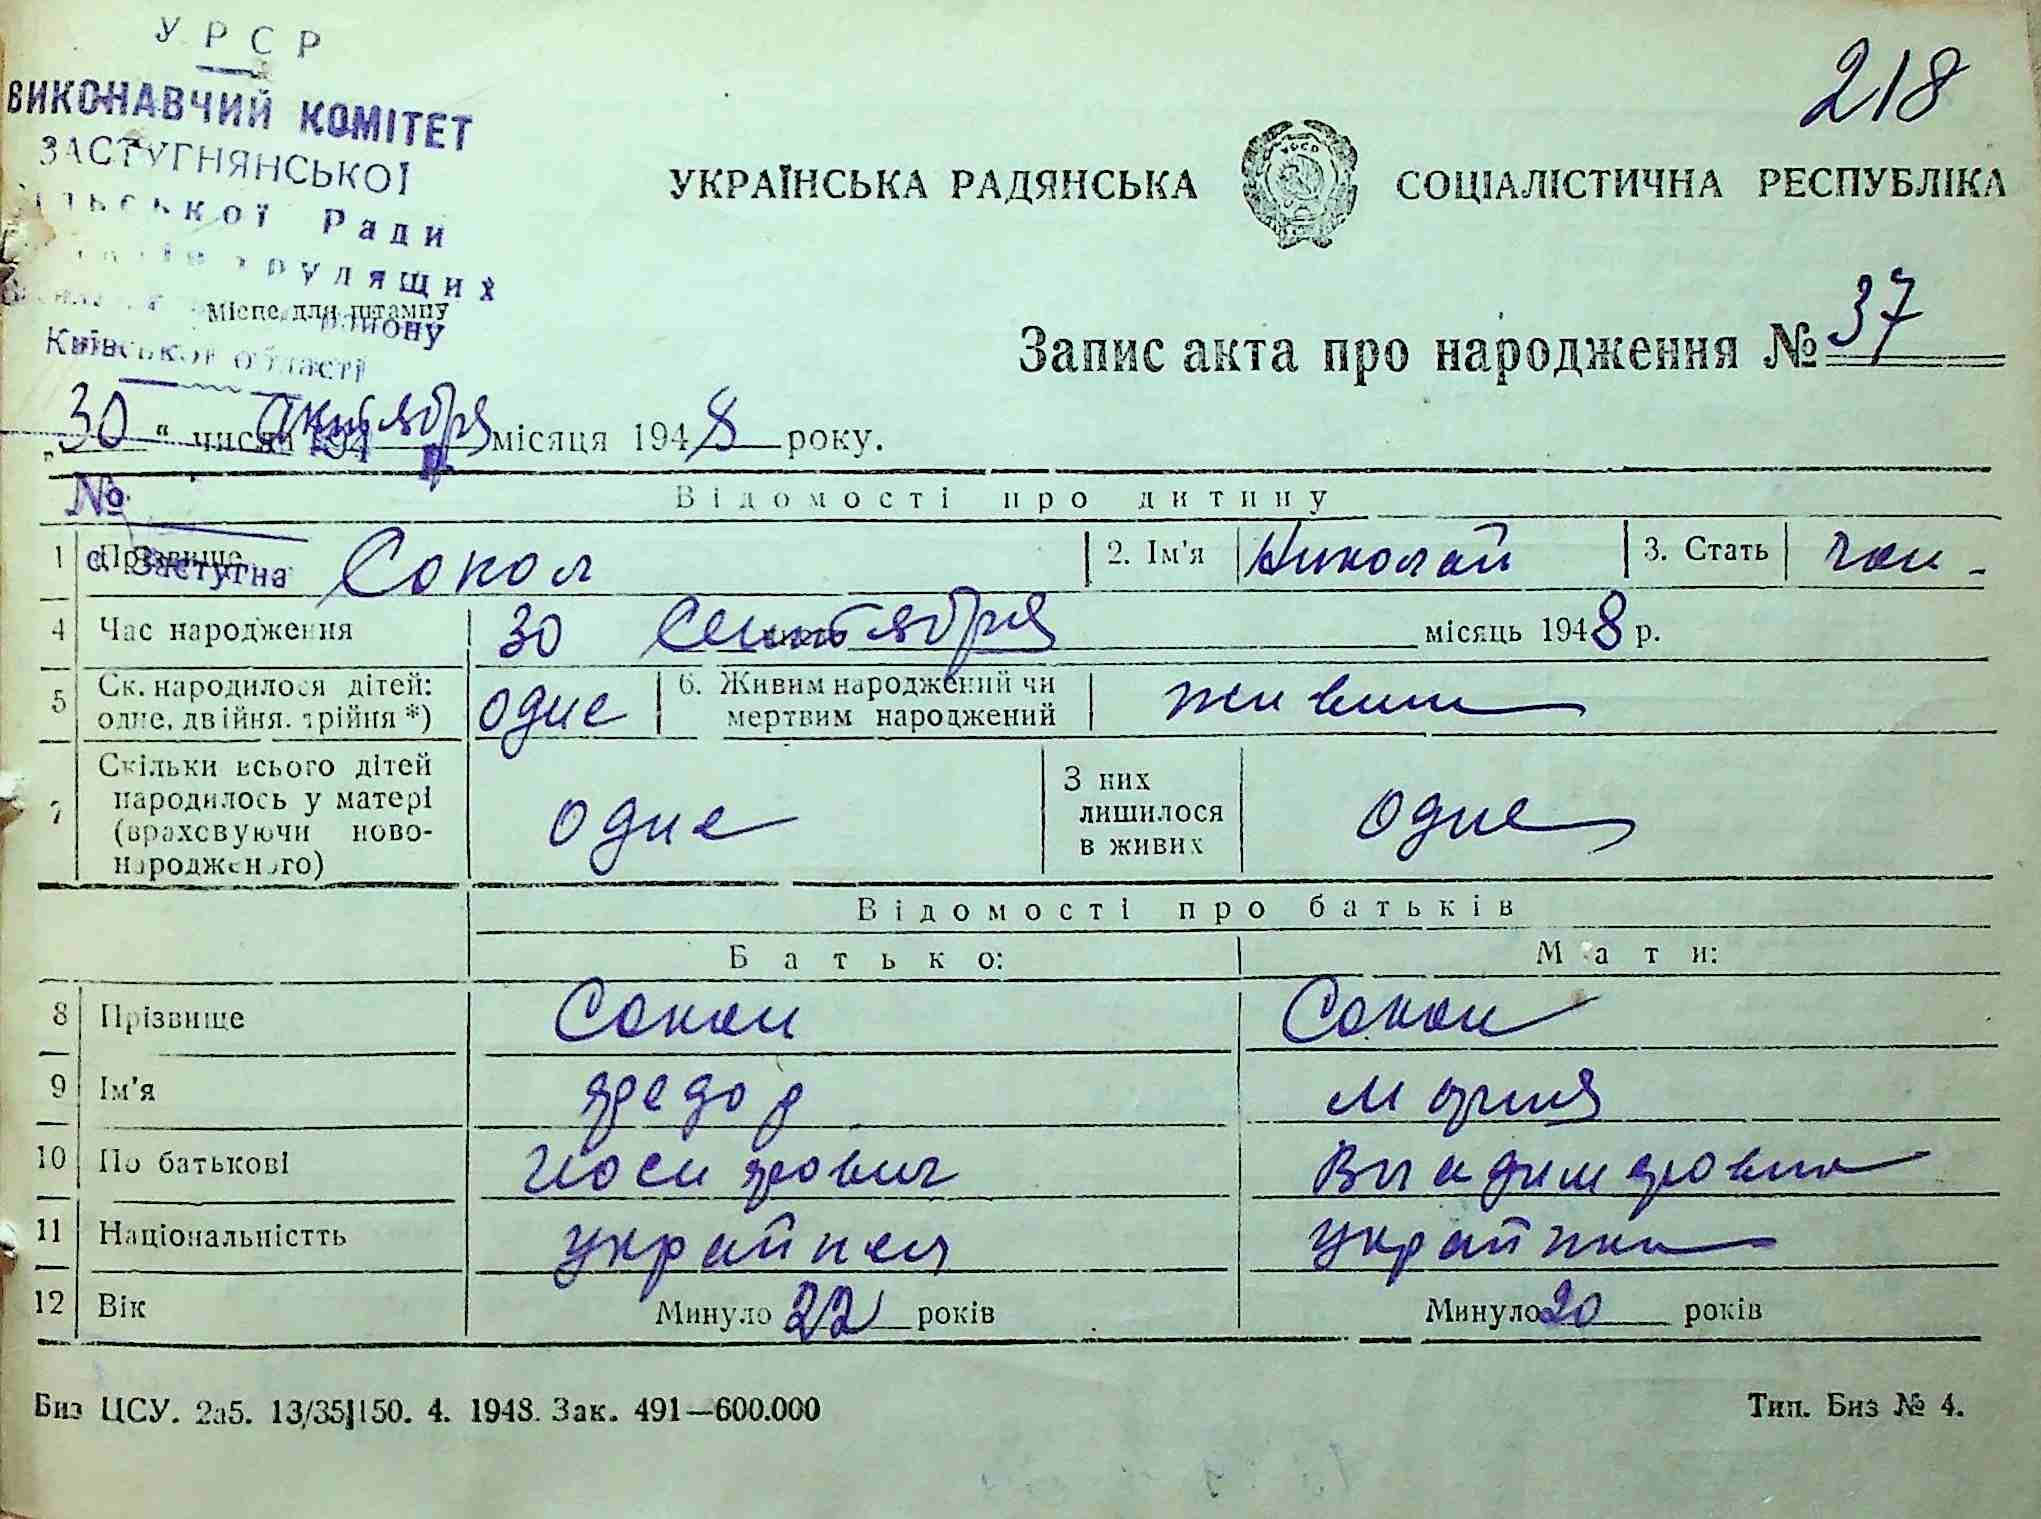 218
УРСР
ВИКОНАВЧИЙ КОМІТЕТ
ЗАСТУГНЯНСЬКОЇ
Ради
трудящих
району
Київської області
Місце для штампу
УКРАЇНСЬКА РАДЯНСЬКА СОЦІАЛІСТИЧНА РЕСПУБЛІКА
Запис акта про народження № 37
„30" числа октября місяця 1948 року.
194 р.
№
с. Застугна
Відомості про дитину
1 Прізвище Сокол 2. Ім'я Николай 3. Стать чол.
4 Час народження 30 сентября місяць 1948 р.
5 Ск. народилося дітей: одне, двійня, трійня *) одне 6. Живим народжений чи мертвим народжений живим
7 Скільки всього дітей народилось у матері (враховуючи ново-народженого) одне З них лишилося в живих одне
Відомості про батьків
Батько: Мати:
8 Прізвище Сокол Сокол
9 Ім'я Федор Мария
10 По батькові Иосифович Владимировна
11 Національністть украйнец украйнка
12 Вік Минуло 22 років Минуло 20 років
Биз ЦСУ. 2а5. 13/35]150. 4. 1948. Зак. 491—600.000 Тип. Биз № 4.